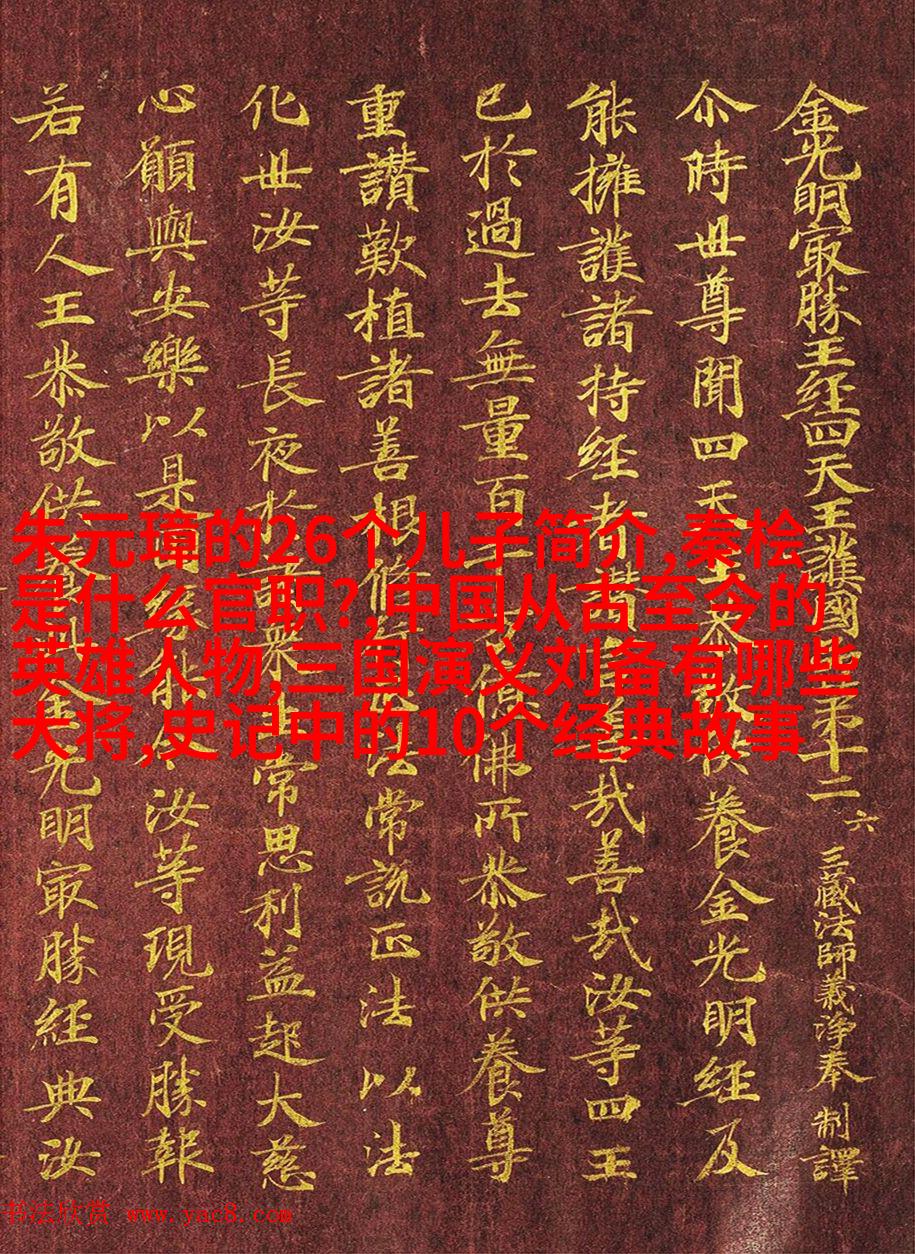 金光明㝡勝王経四天王護國品第十二 六 三藏法師義浄奉 制譯
尒時世尊聞四天王恭敬供養金光明經及
能擁護諸持経者讃善哉善哉汝等四王
已於過去無量百千億佛所恭敬供養尊
重讃歎植諸善根修正法常說正法以法
化世汝等長夜於衆生常思利益起大慈
心願與安樂以是因能令汝等現受勝報
若有人王恭敬供養光明㝡勝經典汝
朱元璋的26个儿子简介,秦桧
是什么官职?,中国从古至今的
英雄人物,三国演义刘备有哪些
大将,史记中的10个经典故事
书法欣赏 www.yac8.com